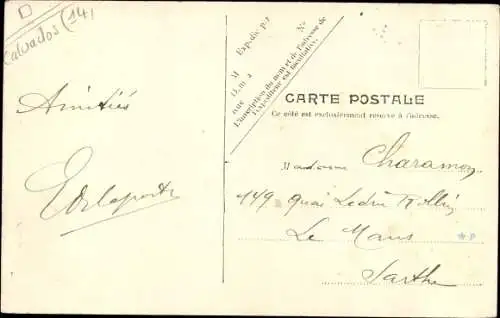 Calvados (14)
Amitiés
Edelaporte
Expédié par
Nº
M
Dem. à
rue
L'inscription du nom et de l'adresse de
l'expéditeur est facultative.
CARTE POSTALE
Ce côté est exclusivement réservé à l'adresse.
Madame Charamon
149 Quai Ledru Rollin
Le Mans
Sarthe